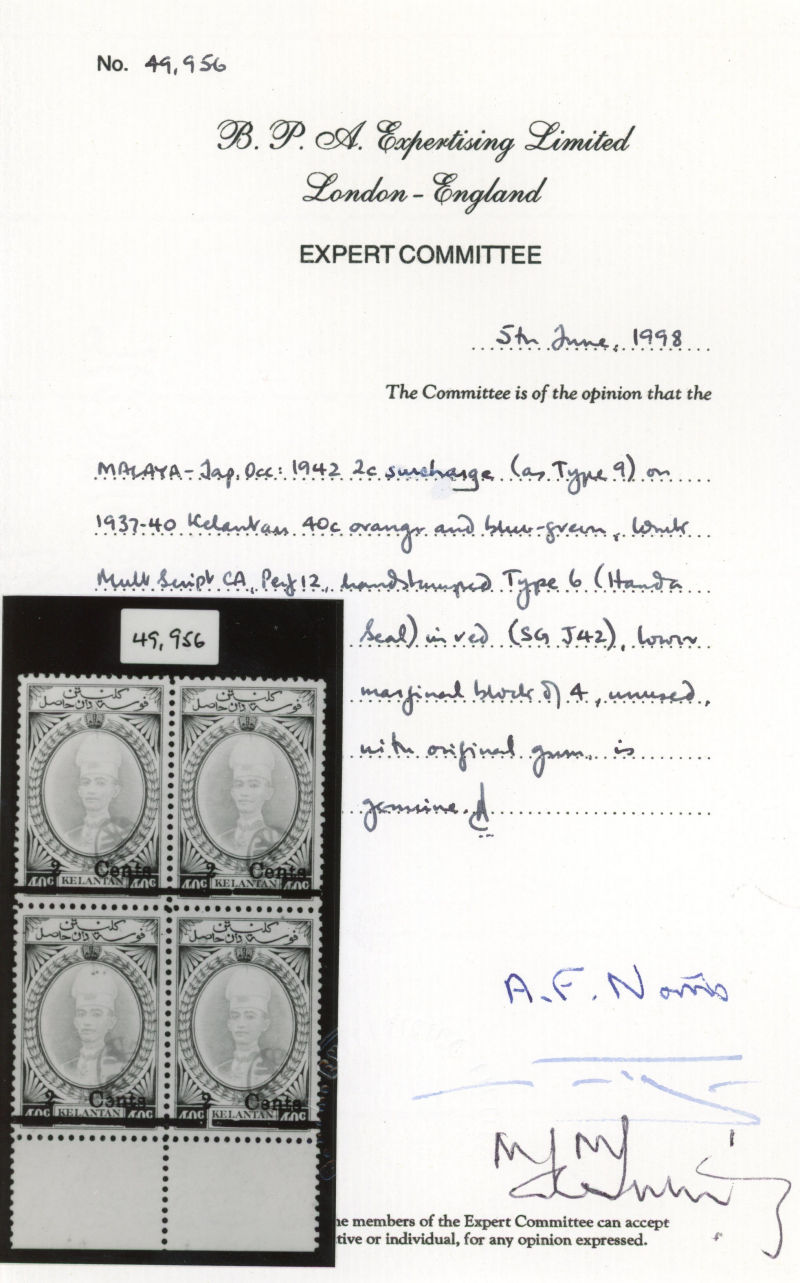 No. 49,956
B. P. A. Expertising Limited
London - England
EXPERT COMMITTEE
5th June, 1998
The Committee is of the opinion that the
MALAYA - Jap. Occ: 1942 2c surcharge (as Type 9) on
1937-40 Kelantan 40c orange and blue-green, wmk
Mult Script CA, Perf 12, handstamped Type 6 (Handa
Seal) in red (SG J42), lower
marginal block of 4, unused,
with original gum, is
genuine.
49,956
كلنتن كلنتن
فوس دان حاصل فوس دان حاصل
2 Cents 2 Cents
40C KELANTAN 40C 40C KELANTAN 40C
كلنتن كلنتن
فوس دان حاصل فوس دان حاصل
2 Cents 2 Cents
40C KELANTAN 40C 40C KELANTAN 40C
A. F. Norris
he members of the Expert Committee can accept
tive or individual, for any opinion expressed.